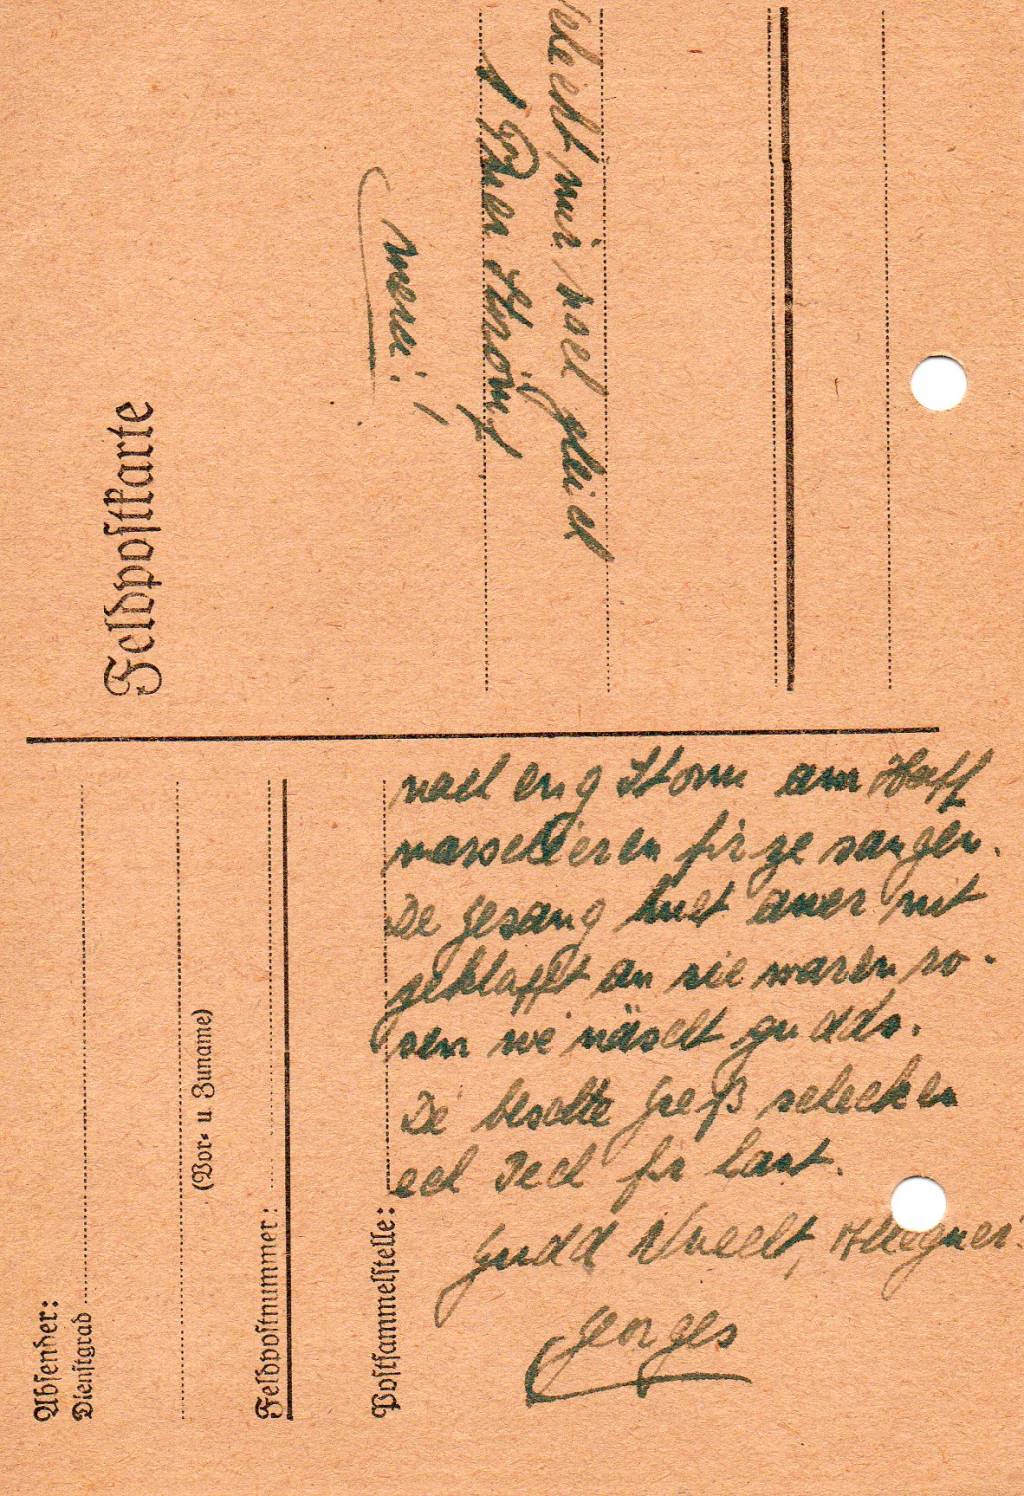 Feldpostkarte
schéckt mir wael gleich
1 Puer Strömf
merci!
Absender:
Dienstgrad
(Vor- u. Zuname)
Feldpostnummer:
Postsammelstelle:
nach eng Stonn am Haff
marschéieren fir ze sangen.
De Gesang huet awer nit
geklappt an sie waren ro-
sen wé näscht gudds.
Dé beschte Greß schecken
ech Iech fir haut.
Gudd Nuecht,
Georges